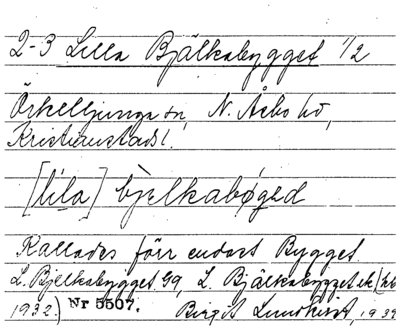 2-3 Lilla Bjälkabygget 1/2
Örkelljunga sn, N. Åsbo hd,
Kristianstads l.
[lila] bjelkabøged
Kallades förr endast Bygget.
L. Bjelkabygget GG, L. Bjälkabygget ek. (
1932.) Nr 5507. Birgit Lundkvist, 1932